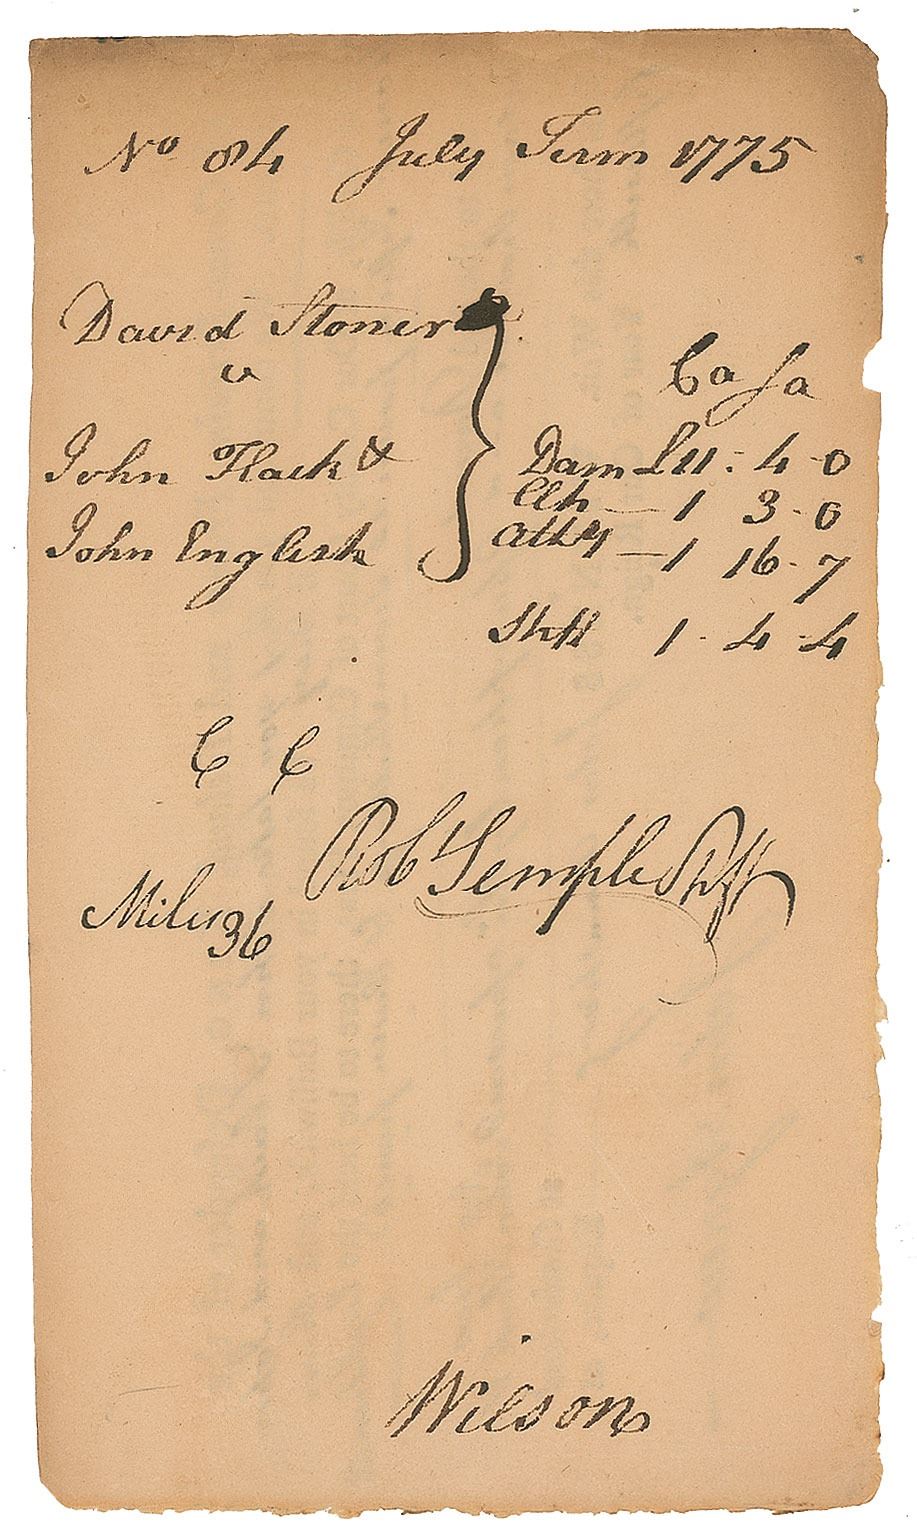 No 84 July Term 1775
David Stoner
v
John Flack &
John English
Ca Sa
Dam £11 : 4 - 0
Clk — 1 3 - 0
Atty — 1 16 - 7
Shff 1 - 4 - 4
C C
Robt Semple Shff
Miles 36
Wilson